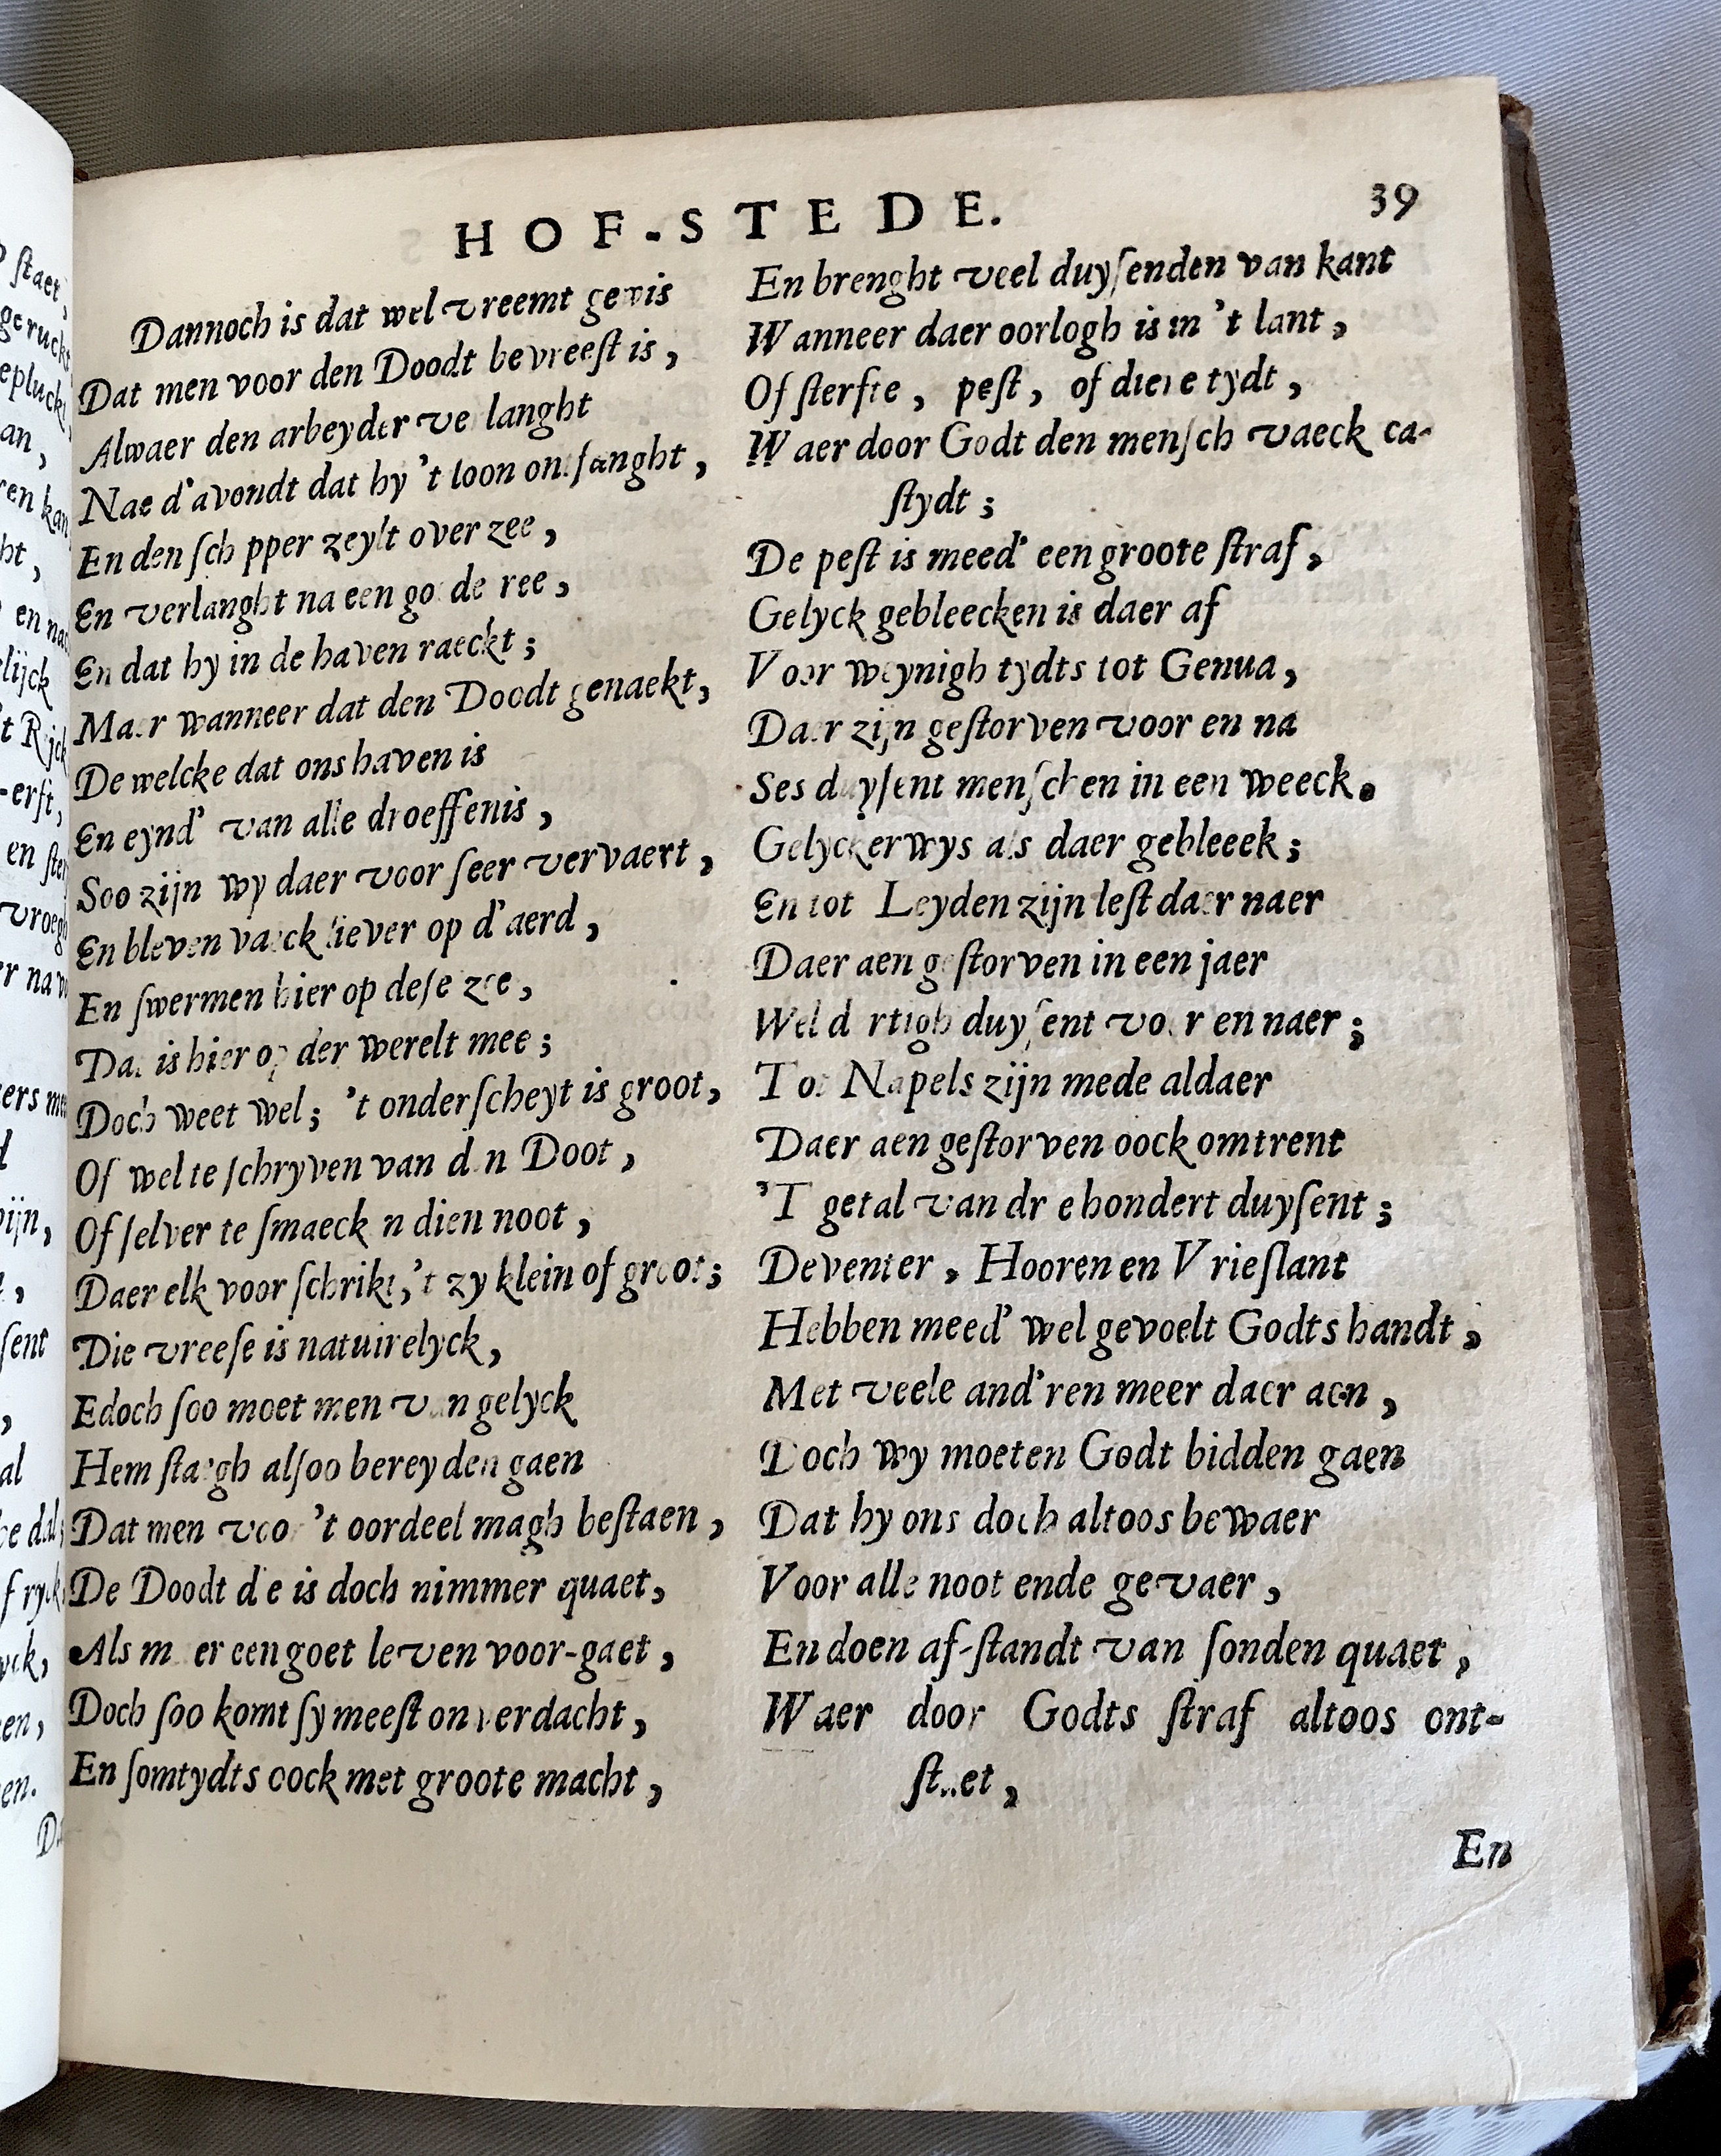 HOF-STEDE.
39
Dannoch is dat wel vreemt gewis
Dat men voor den Doodt bevreest is,
Alwaer den arbeyder verlanght
Nae d'avondt dat hy 't loon ontfanght,
En den schipper zeylt over zee,
En verlanght na een goede ree,
En dat hy in de haven raeckt;
Maer wanneer dat den Doodt genaekt,
De welcke dat ons haven is
En eynd' van alle droeffenis,
Soo zijn wy daer voor seer vervaert,
En bleven vaeck liever op d'aerd,
En swermen hier op dese zee,
Dat is hier op der werelt mee;
Doch weet wel; 't onderscheyt is groot,
Of wel te schryven van den Doot,
Of selver te smaecken dien noot,
Daer elk voor schrikt, 't zy klein of groot;
Die vreese is natuirelyck,
Edoch soo moet men van gelyck
Hem staegh alsoo bereyden gaen
Dat men voor 't oordeel magh bestaen,
De Doodt die is doch nimmer quaet,
Als m er een goet leven voor-gaet,
Doch soo komt sy meest onverdacht,
En somtydts oock met groote macht,
En brenght veel duysenden van kant
Wanneer daer oorlogh is in 't lant,
Of sterfte, pest, of diere tydt,
Waer door Godt den mensch vaeck ca-
stydt;
De pest is meed' een groote straf,
Gelyck gebleecken is daer af
Voor weynigh tydts tot Genua,
Daer zijn gestorven voor en na
Ses duysent menschen in een weeck.
Gelyckerwys als daer gebleeek;
En tot Leyden zijn lest daer naer
Daer aen gestorven in een jaer
Wel dertigh duysent voor en naer;
Tot Napels zijn mede aldaer
Daer aen gestorven oock omtrent
'T getal van drie hondert duysent;
Deventer, Hooren en Vrieslant
Hebben meed' wel gevoelt Godts handt,
Met veele and'ren meer daer aen,
Doch wy moeten Godt bidden gaen
Dat hy ons doch altoos bewaer
Voor alle noot ende gevaer,
En doen af-standt van sonden quaet,
Waer door Godts straf altoos ont-
staet,
En